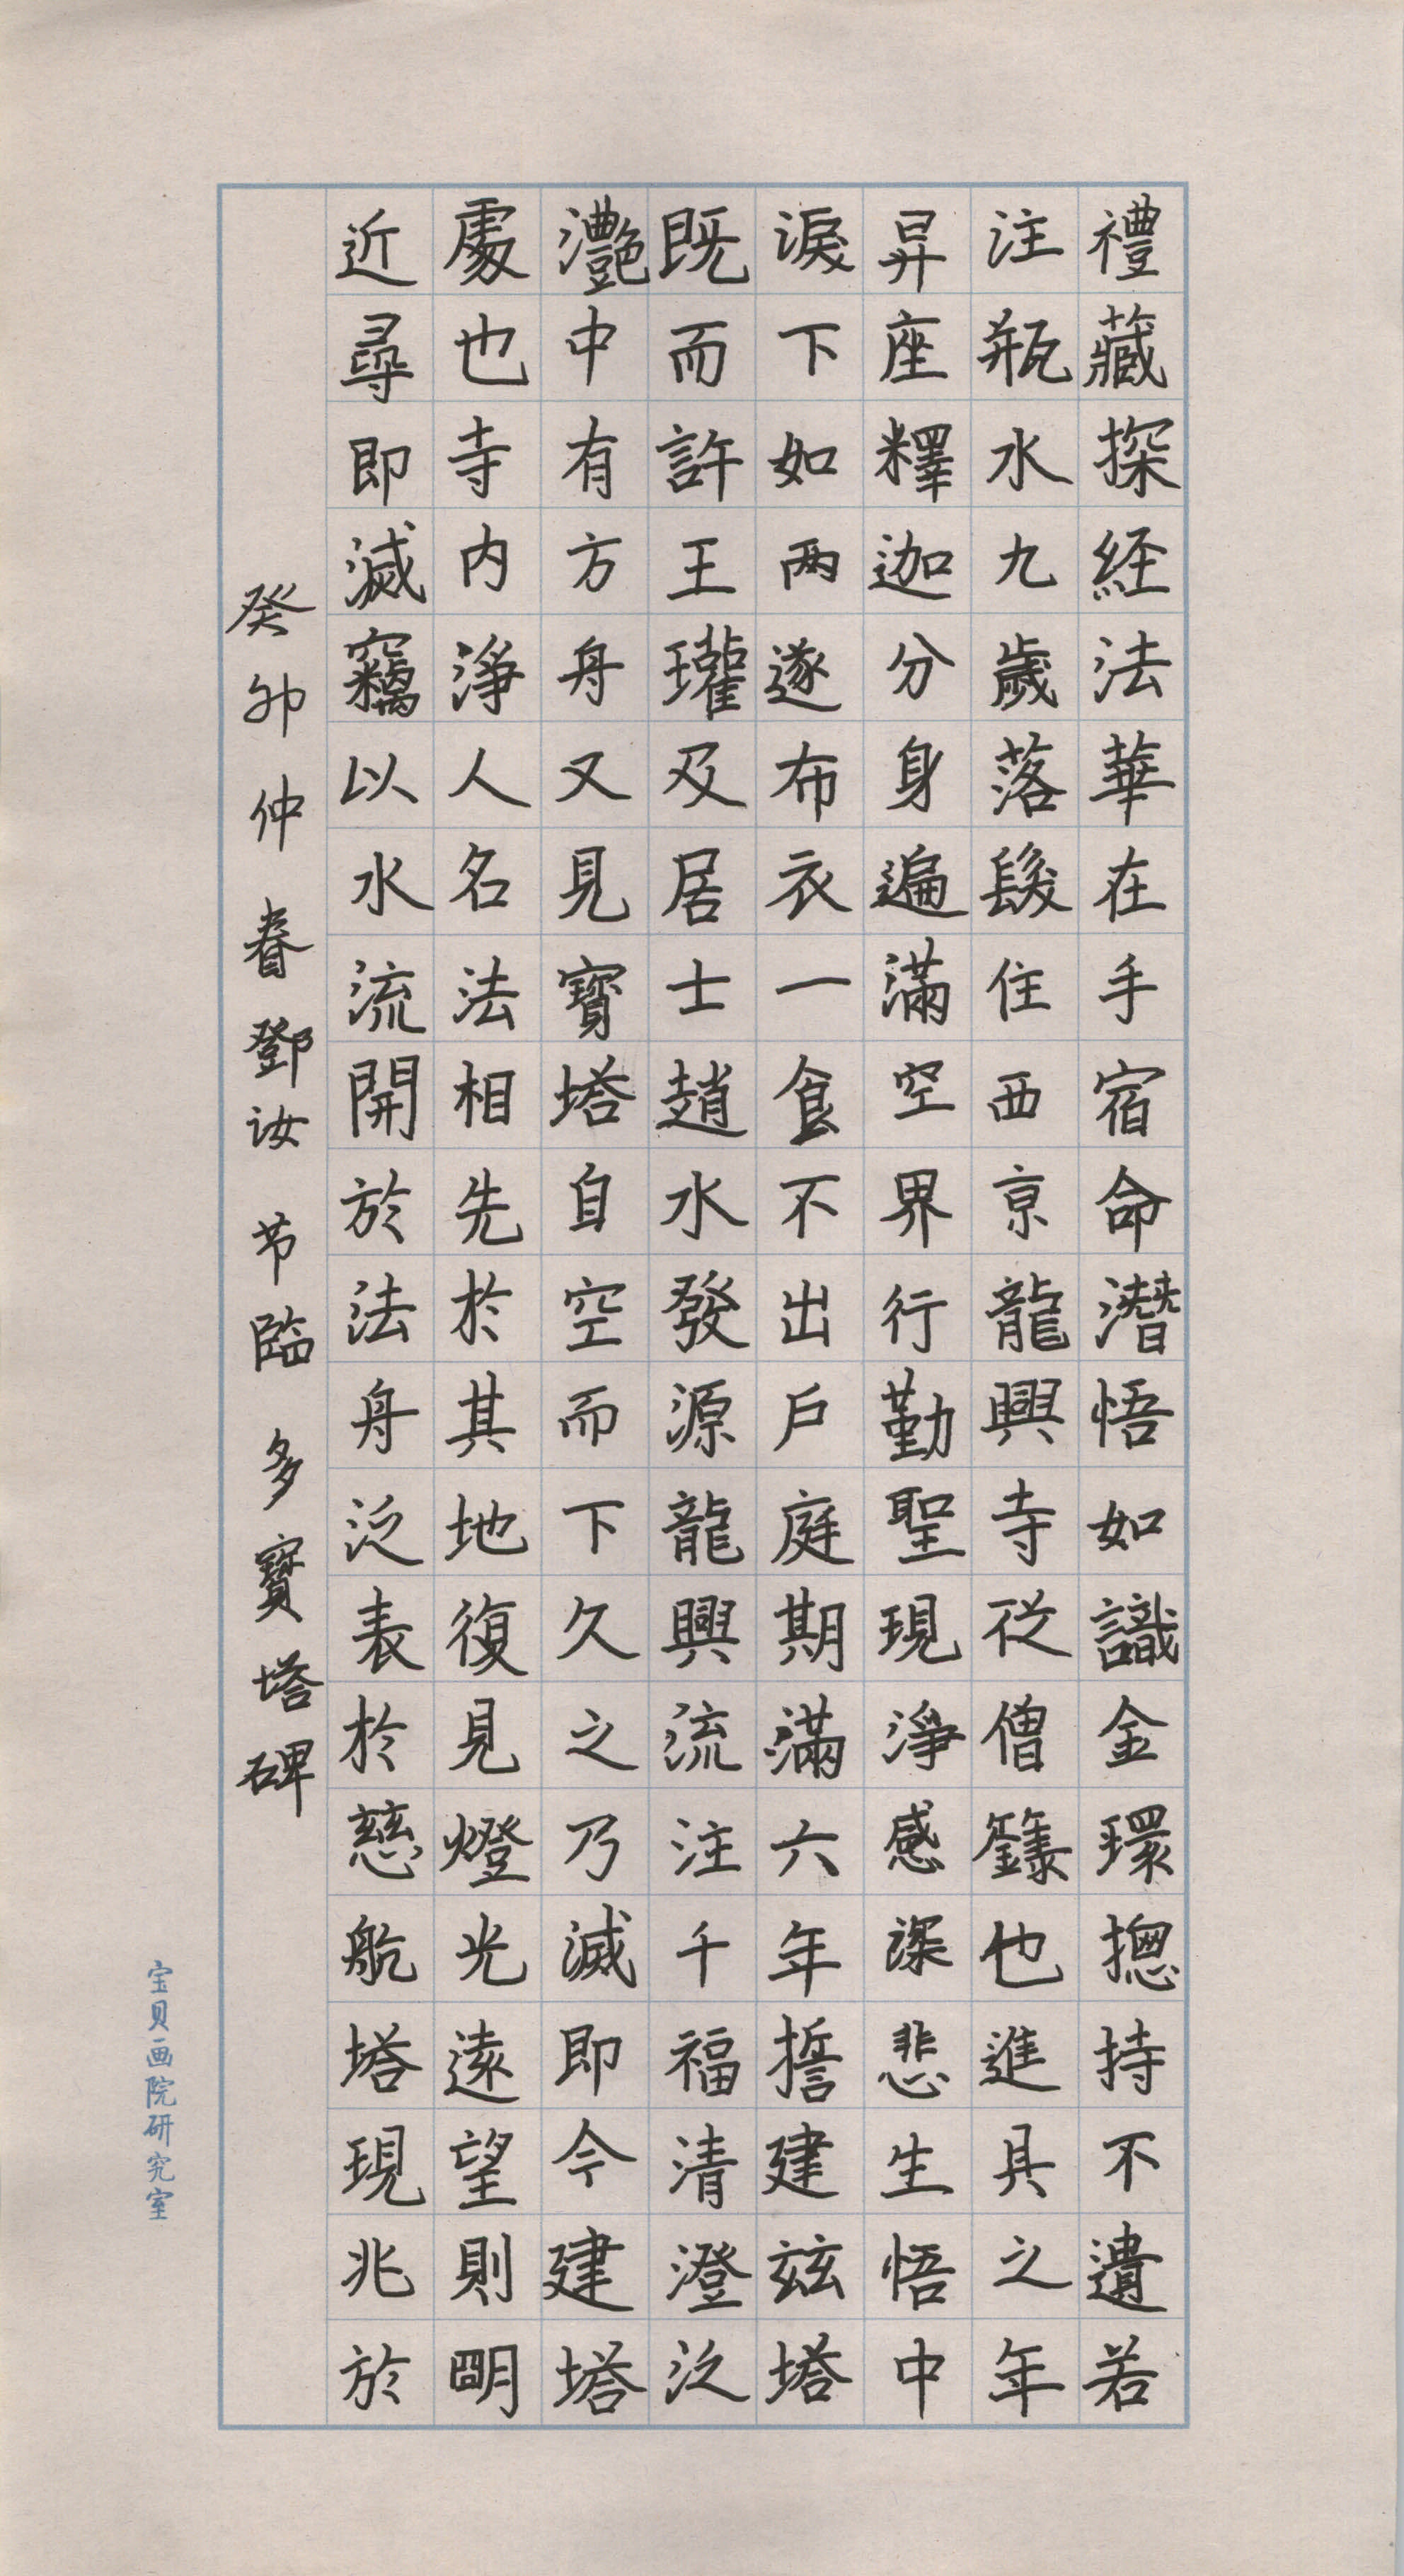 禮藏探經法華在手宿命潛悟如識金環揔持不遺若
注瓶水九歲落髮住西京龍興寺從僧籙也進具之年
昇座釋迦分身遍滿空界行勤聖現淨感深悲生悟中
淚下如雨遂布衣一食不出戶庭期滿六年誓建茲塔
既而許王瓘及居士趙水發源龍興流注千福清澄泛
灧中有方舟又見寶塔自空而下久之乃滅即今建塔
處也寺內淨人名法相先於其地復見燈光遠望則明
近尋即滅竊以水流開於法舟泛表於慈航塔現兆於
癸卯仲春鄧汝节臨多寶塔碑
宝贝画院研究室